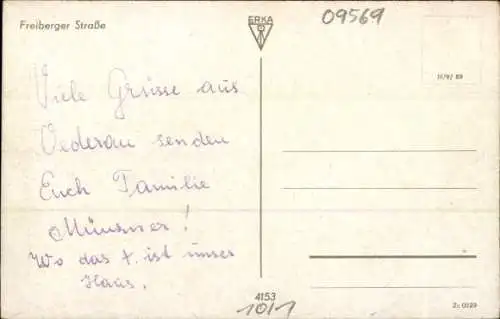 Freiberger Straße
ERKA
09569
III/9/ 89
Viele Grüsse aus
Oederau senden
Euch Familie
Münsner!
Wo das x. ist unser
Haus.
4153
10/1
Zc 0529